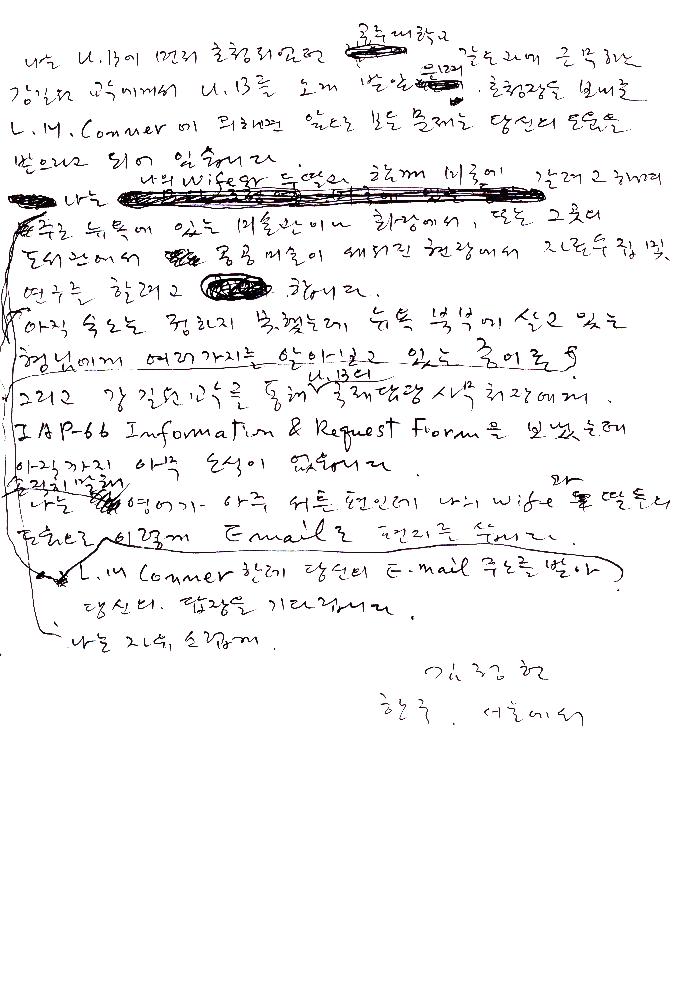 공주대학교
나는 U.B에 먼저 초청되었던 같은과에 근무하는
강길원 교수에게서 U.B를 소개 받았는데. 초청장을 보내준
L.M. Conner에 의하면 앞으로 모든 문제는 당신의 도움을
받으라고 되어 있습니다.
나는 나의 wife와 두딸과 함께 미국에 갈려고 하며
주로 뉴욕에 있는 미술관이나 화랑에서, 또는 그곳의
도서관에서 공공미술이 세워진 현장에서 자료수집 및
연구를 할려고 합니다.
아직 숙소는 정하지 못했는데 뉴욕 북부에 살고 있는
형님에게 여러가지를 알아보고 있는 중이로
그리고 강길원 교수를 통해 U.B의 국제담당 사무처장에게.
IAP-66 Information & Request Form을 보냈는데
아직까지 아무 소식이 없습니다.
솔직히 말해
나는 영어가 아주 서툰편인데 나의 wife과 딸들의
도움으로 이렇게 E-mail로 편지를 씁니다.
L.M Conner한테 당신의 E-mail 주소를 받아
당신의 답장을 기다립니다.
나는
김정헌
한국. 서울에서